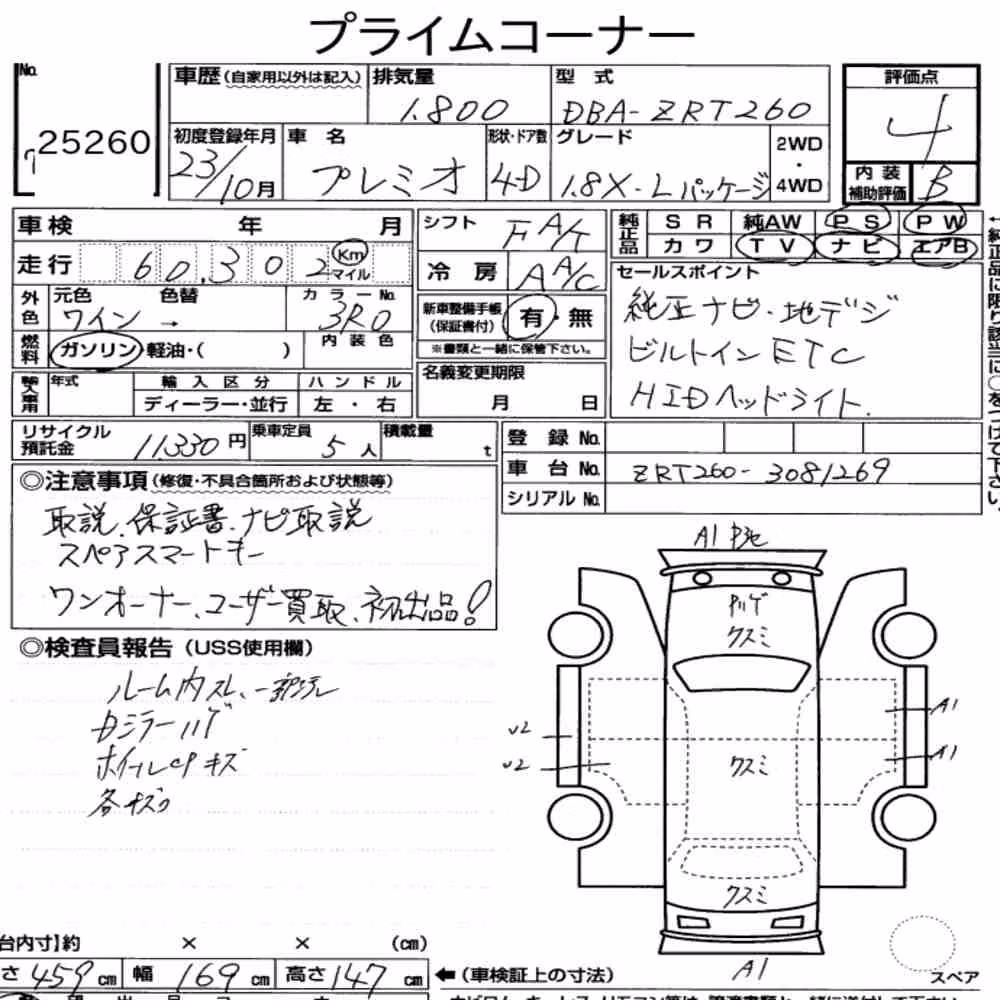 プライムコーナー
No.
25260
車歴(自家用以外は記入)
排気量
1.800
型式
DBA-ZRT260
評価点
4
初度登録年月
23/10月
車名
プレミオ
形状・ドア数
4D
グレード
1.8X-Lパッケージ
2WD
・
4WD
内装
補助評価
B
車検 年 月
走行 60,302 Km マイル
外色
元色 色替
ワイン →
カラーNo.
3R0
燃料
ガソリン・軽油・( )
内装色
輸入車用
年式
輸入区分
ディーラー・並行
ハンドル
左・右
シフト FA/T
冷房 AA/C
新車整備手帳
(保証書付)
有・無
※書類と一緒に保管下さい。
名義変更期限
月 日
純正品
SR 純AW PS PW
カワ TV ナビ エアB
セールスポイント
純正ナビ・地デジ
ビルトインETC
HIDヘッドライト.
リサイクル
預託金
11,330円
乗車定員
5人
積載量
t
登録No.
車台No. ZRT260-3081269
シリアルNo.
◎注意事項(修復・不具合箇所および状態等)
取説、保証書、ナビ取説
スペアスマートキー
ワンオーナー、ユーザー買取、初出品!
◎検査員報告(USS使用欄)
ルーム内スレ、一部汚レ
Dミラーハゲ
ホイールcpキズ
各キズ
A1
クスミ
A1
U2
クスミ
U2
A1
クスミ
A1
スペア
台内寸】約 × × (cm)
さ459cm 幅169cm 高さ147cm
←(車検証上の寸法)